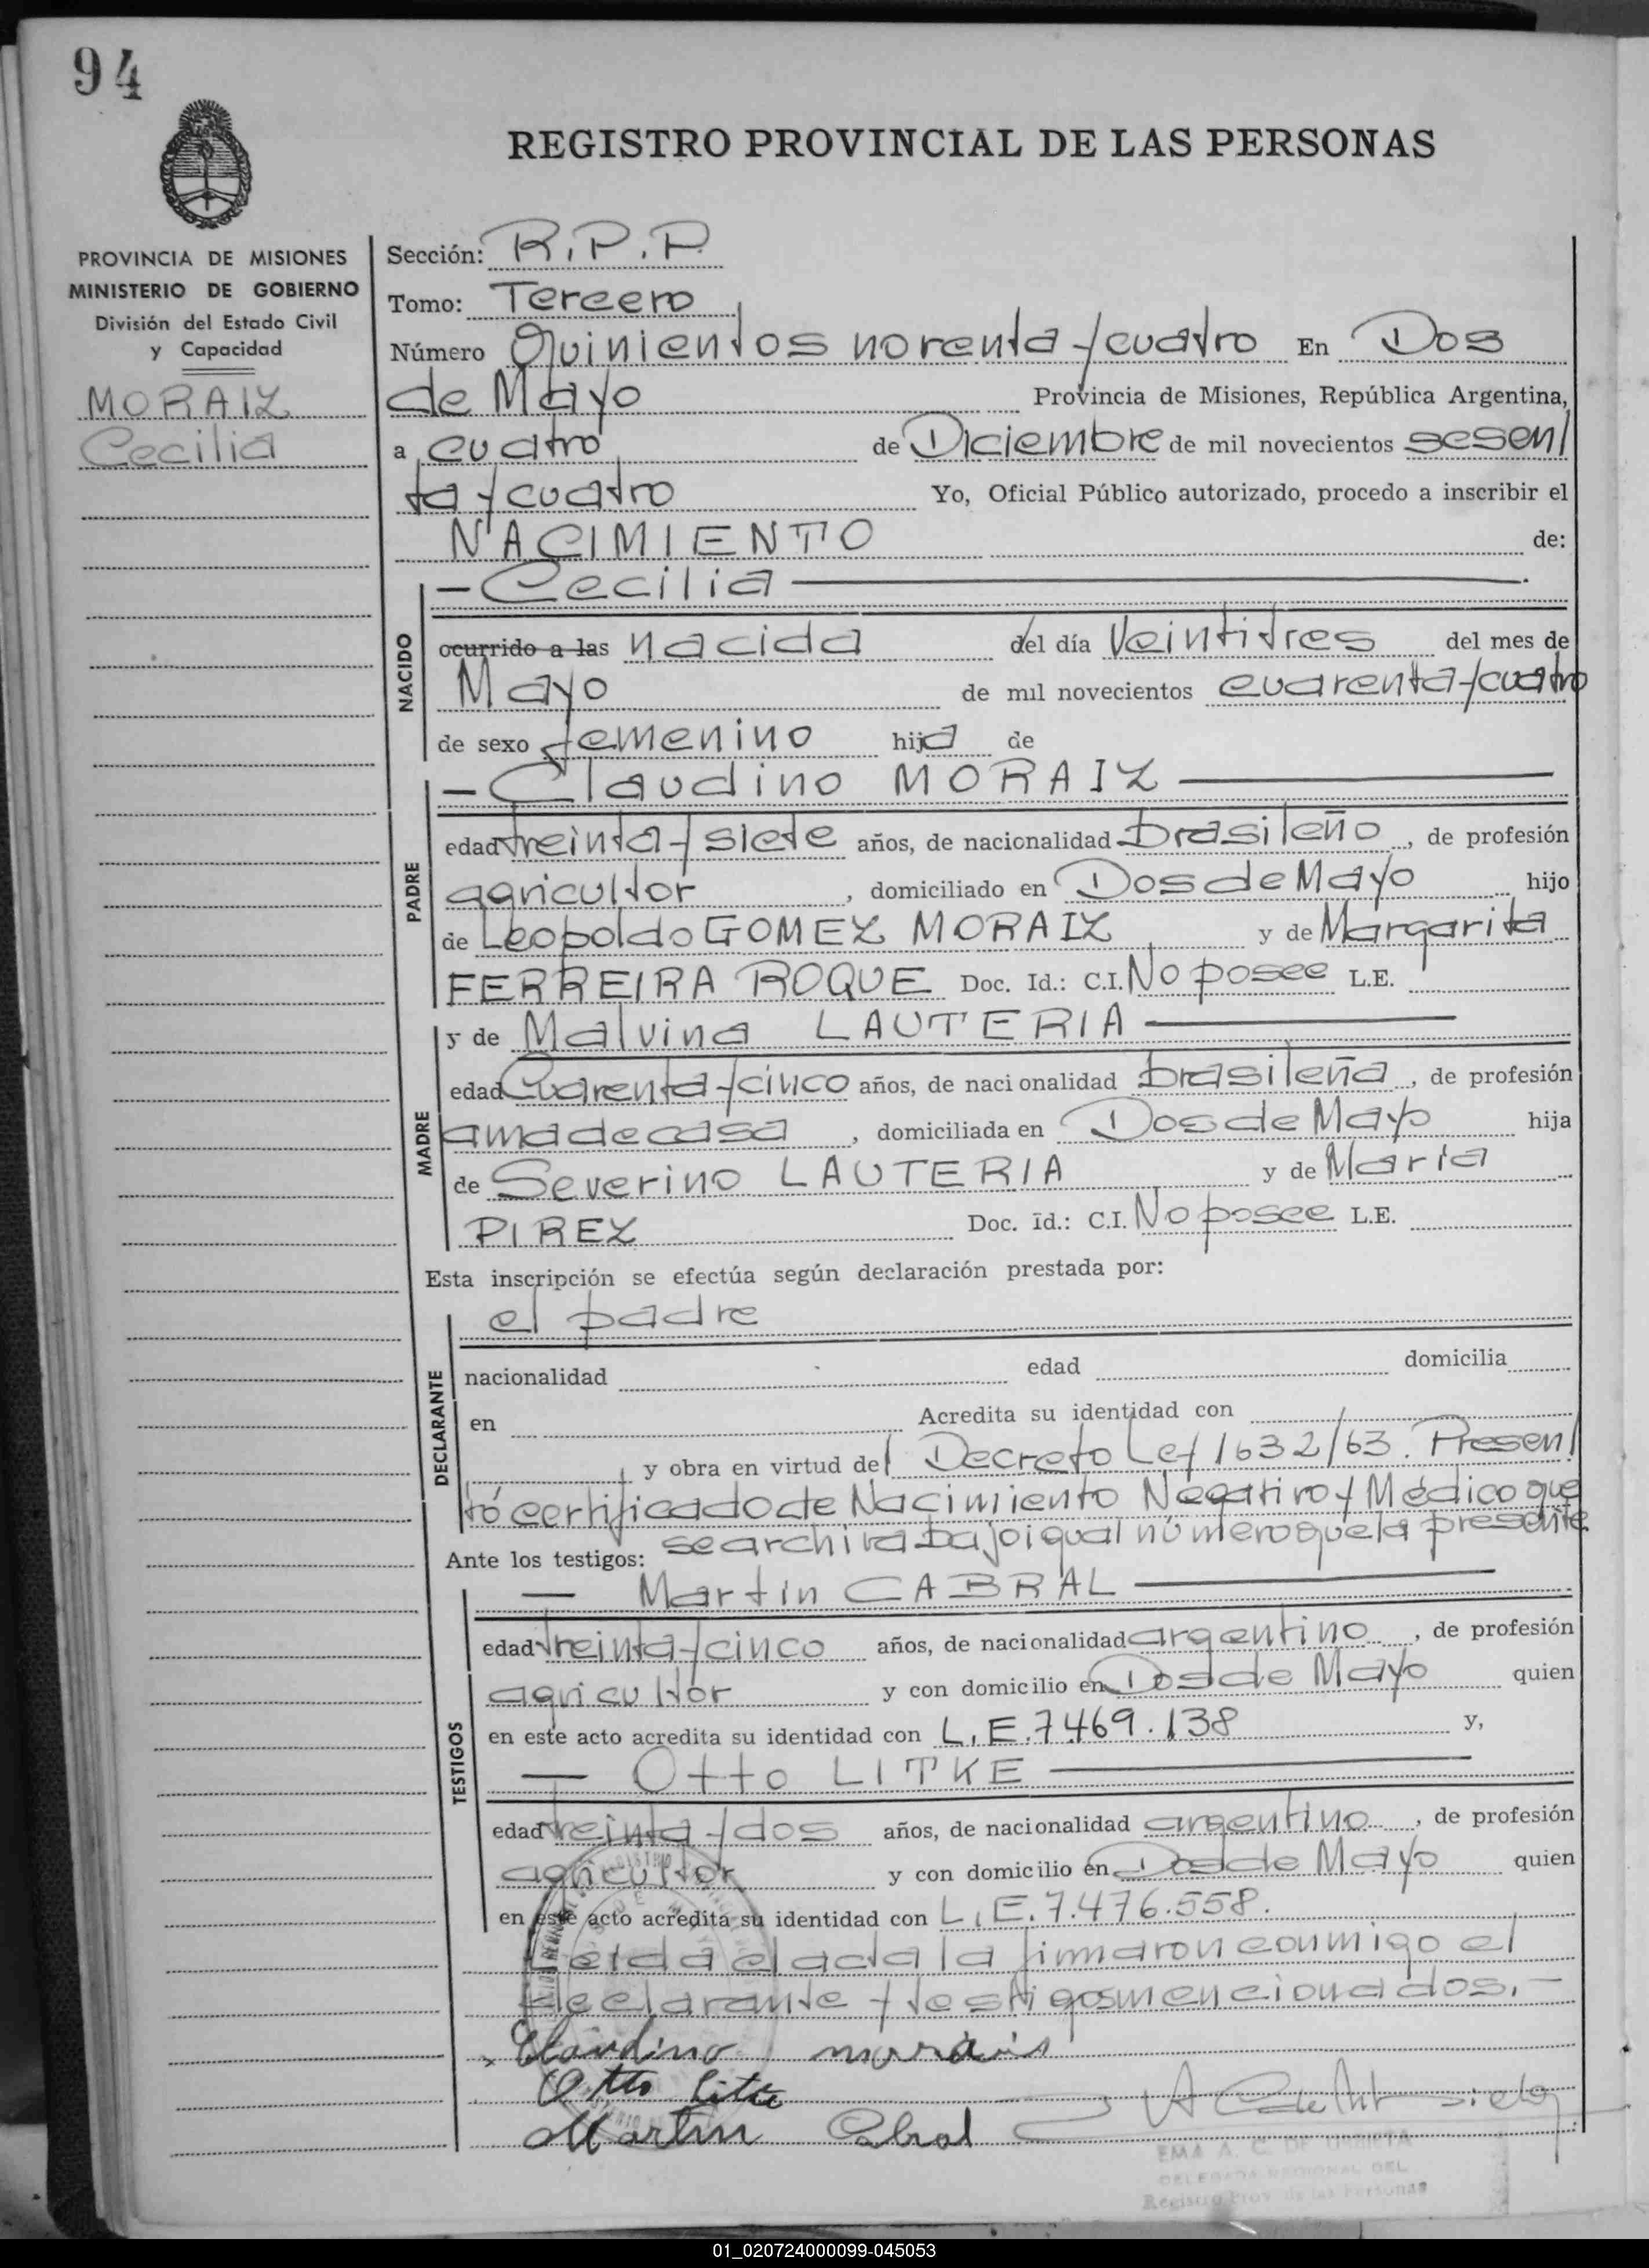 94
REGISTRO PROVINCIAL DE LAS PERSONAS
PROVINCIA DE MISIONES
MINISTERIO DE GOBIERNO
División del Estado Civil
y Capacidad
MORAIZ
Cecilia
Sección: R.P.P.
Tomo: Tercero
Número Quinientos noventa y cuatro En Dos
de Mayo Provincia de Misiones, República Argentina,
a cuatro de Diciembre de mil novecientos sesen/
ta y cuatro Yo, Oficial Público autorizado, procedo a inscribir el
NACIMIENTO de:
NACIDO
— Cecilia —
ocurrido a las nacida del día Veintitres del mes de
Mayo de mil novecientos cuarenta y cuatro
de sexo femenino hija de
PADRE
— Claudino MORAIZ —
edad treinta y siete años, de nacionalidad brasileño, de profesión
agricultor, domiciliado en Dos de Mayo hijo
de Leopoldo GOMEZ MORAIZ y de Margarita
FERREIRA ROQUE Doc. Id.: C.I. No posee L.E.
MADRE
y de Malvina LAUTERIA —
edad Cuarenta y cinco años, de nacionalidad brasileña, de profesión
ama de casa, domiciliada en Dos de Mayo hija
de Severino LAUTERIA y de Maria
PIREZ Doc. Id.: C.I. No posee L.E.
Esta inscripción se efectúa según declaración prestada por:
DECLARANTE
el padre
nacionalidad edad domicilia
en Acredita su identidad con
y obra en virtud del Decreto Ley 1632/63. Presen/
tó certificado de Nacimiento Negativo y Médico que
se archiva bajo igual número que la presente
Ante los testigos:
TESTIGOS
— Martin CABRAL —
edad treinta y cinco años, de nacionalidad argentino, de profesión
agricultor y con domicilio en Dos de Mayo quien
en este acto acredita su identidad con L.E. 7.469.138 y,
— Otto LITKE —
edad treinta y dos años, de nacionalidad argentino, de profesión
agricultor y con domicilio en Dos de Mayo quien
en este acto acredita su identidad con L.E. 7.476.558.
Leida el acta la firmaron conmigo el
declarante y testigos mencionados.—
Claudino morais
Otto Litke
Martin Cabral
EMA A. C. DE URBIETA
DELEGADA REGIONAL DEL
Registro Prov. de las Personas
01_020724000099-045053